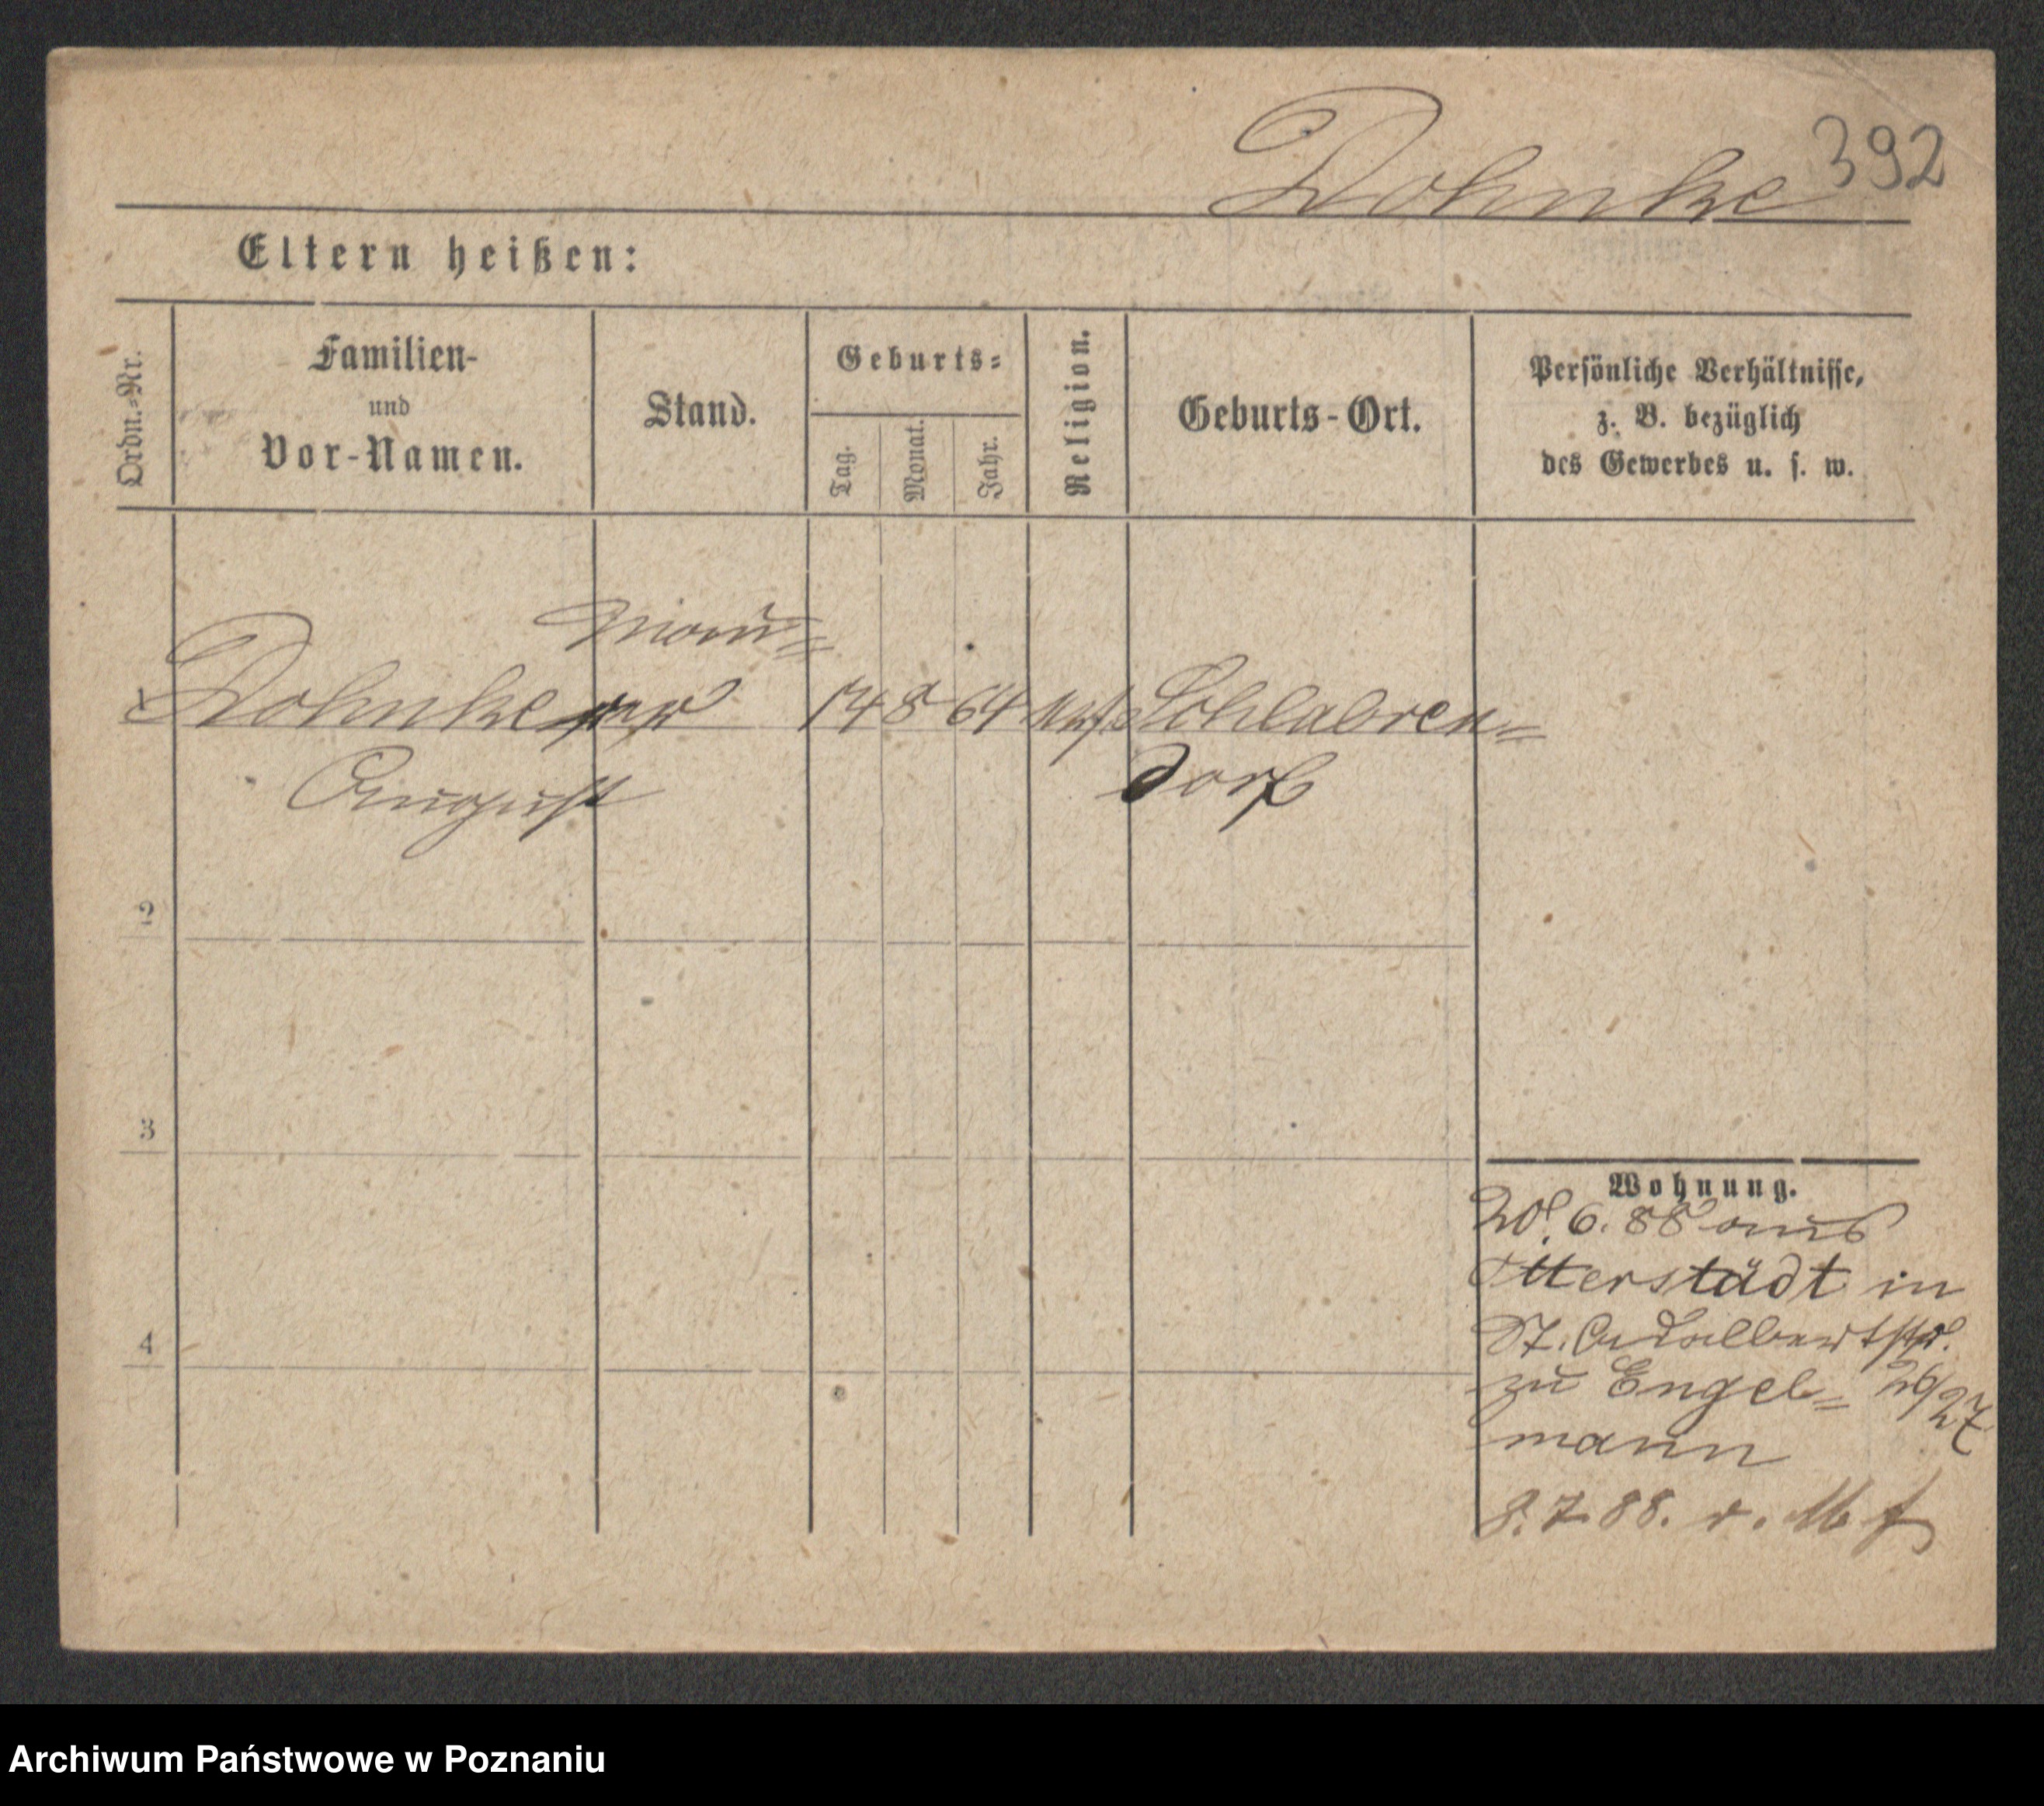 Dohnke 392
Eltern heißen:
Ordn.-Nr.
Familien-
und
Vor-Namen.
Stand.
Geburts-
Tag.
Monat.
Jahr.
Religion.
Geburts-Ort.
Persönliche Verhältnisse,
z. B. bezüglich
des Gewerbes u. s. w.
Mau-
Dohnke rer 14 8 64 Schlabren-
August dorf
2
3
4
Wohnung.
20. 6. 88 aus
Otterstädt in
St. Adalbertstr.
zu Engel- 26/27
mann
8. 7. 88. v.
Archiwum Państwowe w Poznaniu